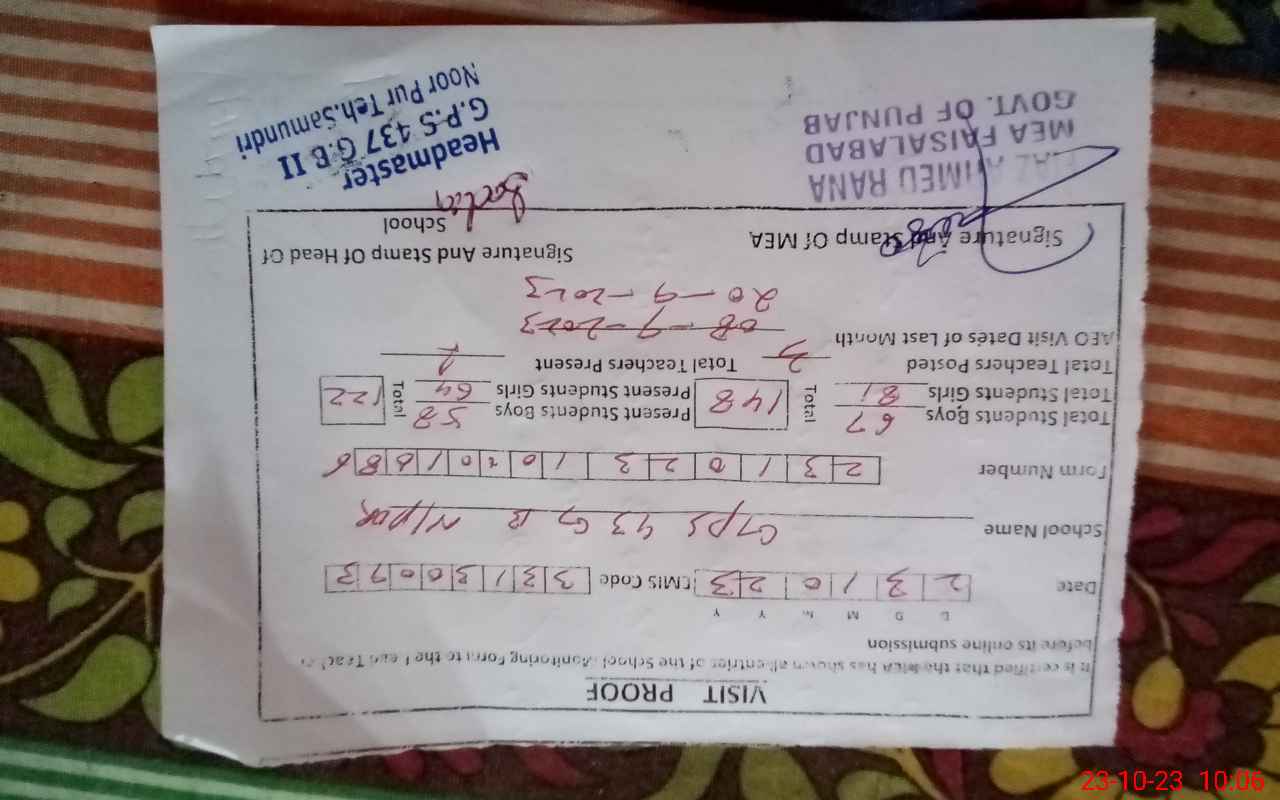 VISIT PROOF
It is certified that the MEA has shown all entries of the School Monitoring Form to the Head Teacher
before its online submission
D D M M Y Y
Date 2 3 1 0 2 3 EMIS Code 3 3 1 3 0 0 7 3
School Name GPS 437 GB N/pur
Form Number 2 3 1 0 2 3 1 0 2 0 1 6 8 6
Total Students Boys 67 Total 148 Present Students Boys 58 Total 122
Total Students Girls 81 Present Students Girls 64
Total Teachers Posted Total Teachers Present 2
AEO Visit Dates of Last Month 08-9-2023
20-9-2023
Signature And Stamp Of MEA Signature And Stamp Of Head Of
School
AHMED RANA
MEA FAISALABAD
GOVT. OF PUNJAB
Headmaster
G.P.S 437 G.B II
Noor Pur Teh.Samundri
23-10-23 10:06